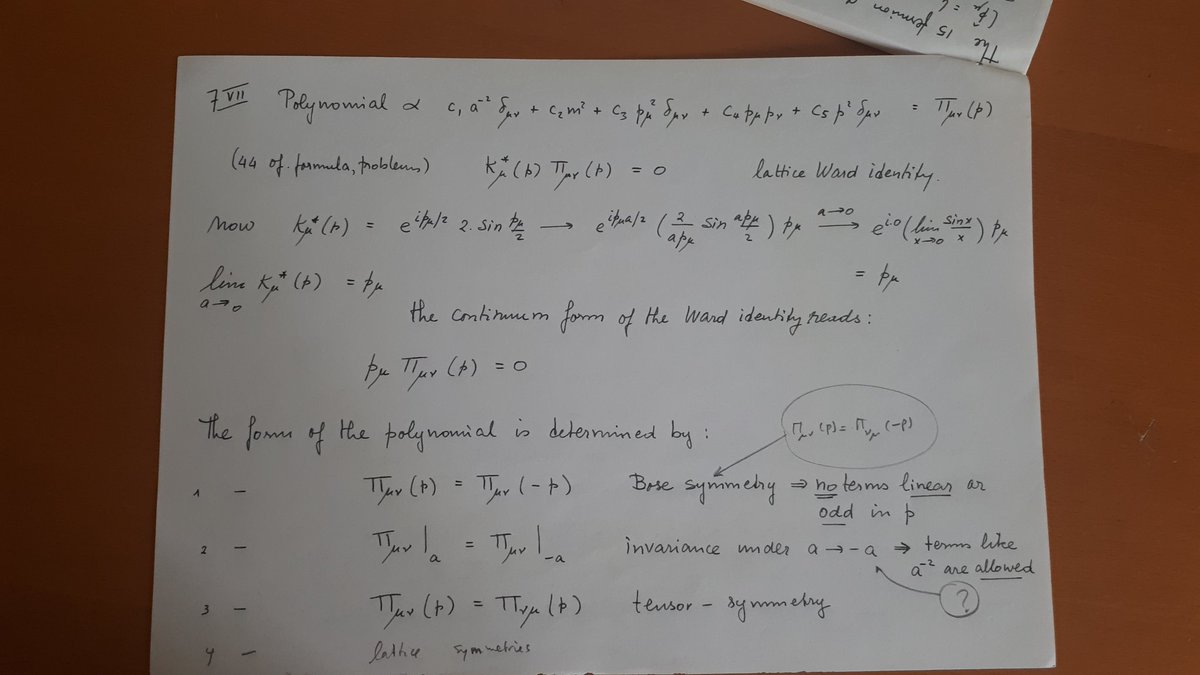 7 VII Polynomial ∝ c₁ a⁻² δ_μν + c₂ m² + c₃ p_μ² δ_μν + c₄ p_μ p_ν + c₅ p² δ_μν = Π_μν (p)
(44 of. formula, problems) K*_μ (p) Π_μν (p) = 0 lattice Ward identity.
Now K*_μ (p) = e^{ip_μ/2} 2. sin p_μ/2 → e^{ip_μ a/2} (2/(a p_μ) sin a p_μ/2) p_μ →^{a→0} e^{i.0} (lim_{x→0} sin x/x) p_μ
lim_{a→0} K*_μ (p) = p_μ = p_μ
the continuum form of the Ward identity reads:
p_μ Π_μν (p) = 0
The form of the polynomial is determined by:
Π_μν (p) = Π_νμ (-p)
1 - Π_μν (p) = Π_μν (-p) Bose symmetry ⇒ no terms linear or
odd in p
2 - Π_μν |_a = Π_μν |_{-a} invariance under a → -a ⇒ terms like
a⁻² are allowed
?
3 - Π_μν (p) = Π_νμ (p) tensor - symmetry
4 - lattice symmetries
The 15 fermion
(p̂_μ =